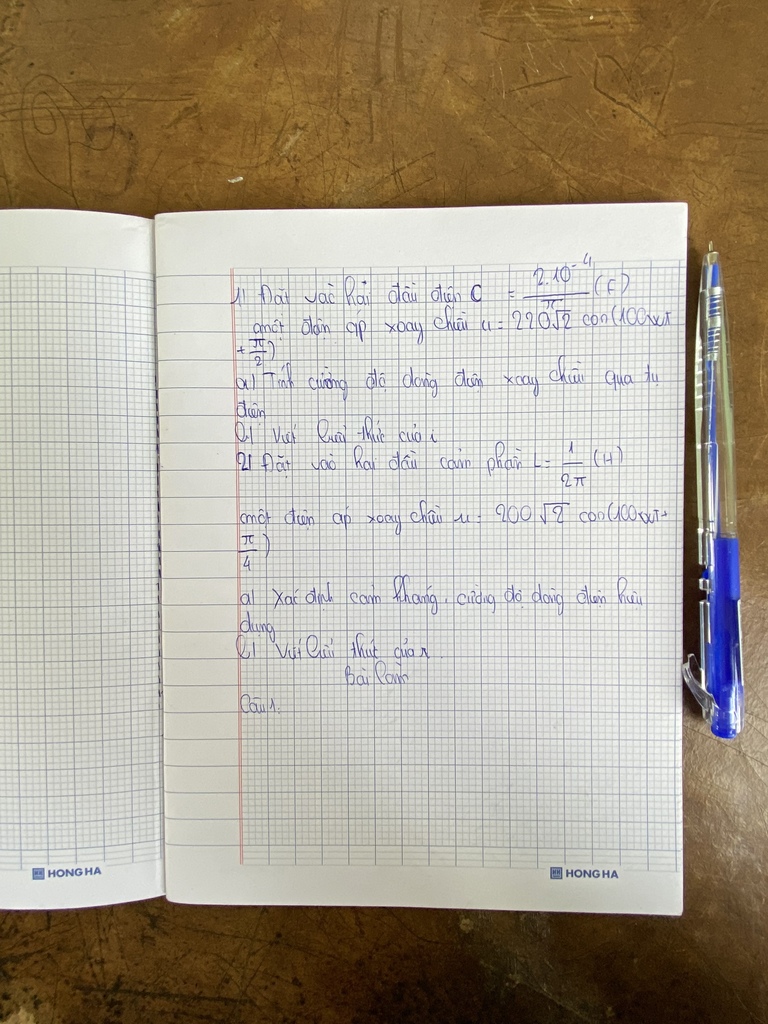 1) Đặt vào hai đầu điện C = 2.10⁻⁴/π (F)
một điện áp xoay chiều u = 220√2 cos(100πt
+ π/2)
a) Tính cường độ dòng điện xoay chiều qua tụ
điện
b) Viết biểu thức của i
2) Đặt vào hai đầu cảm phần L = 1/2π (H)
một điện áp xoay chiều u = 200√2 cos(100πt +
π/4)
a) Xác định cảm kháng, cường độ dòng điện hiệu
dụng
b) Viết biểu thức của i.
Bài làm
Câu 1.
HONG HA
HONG HA